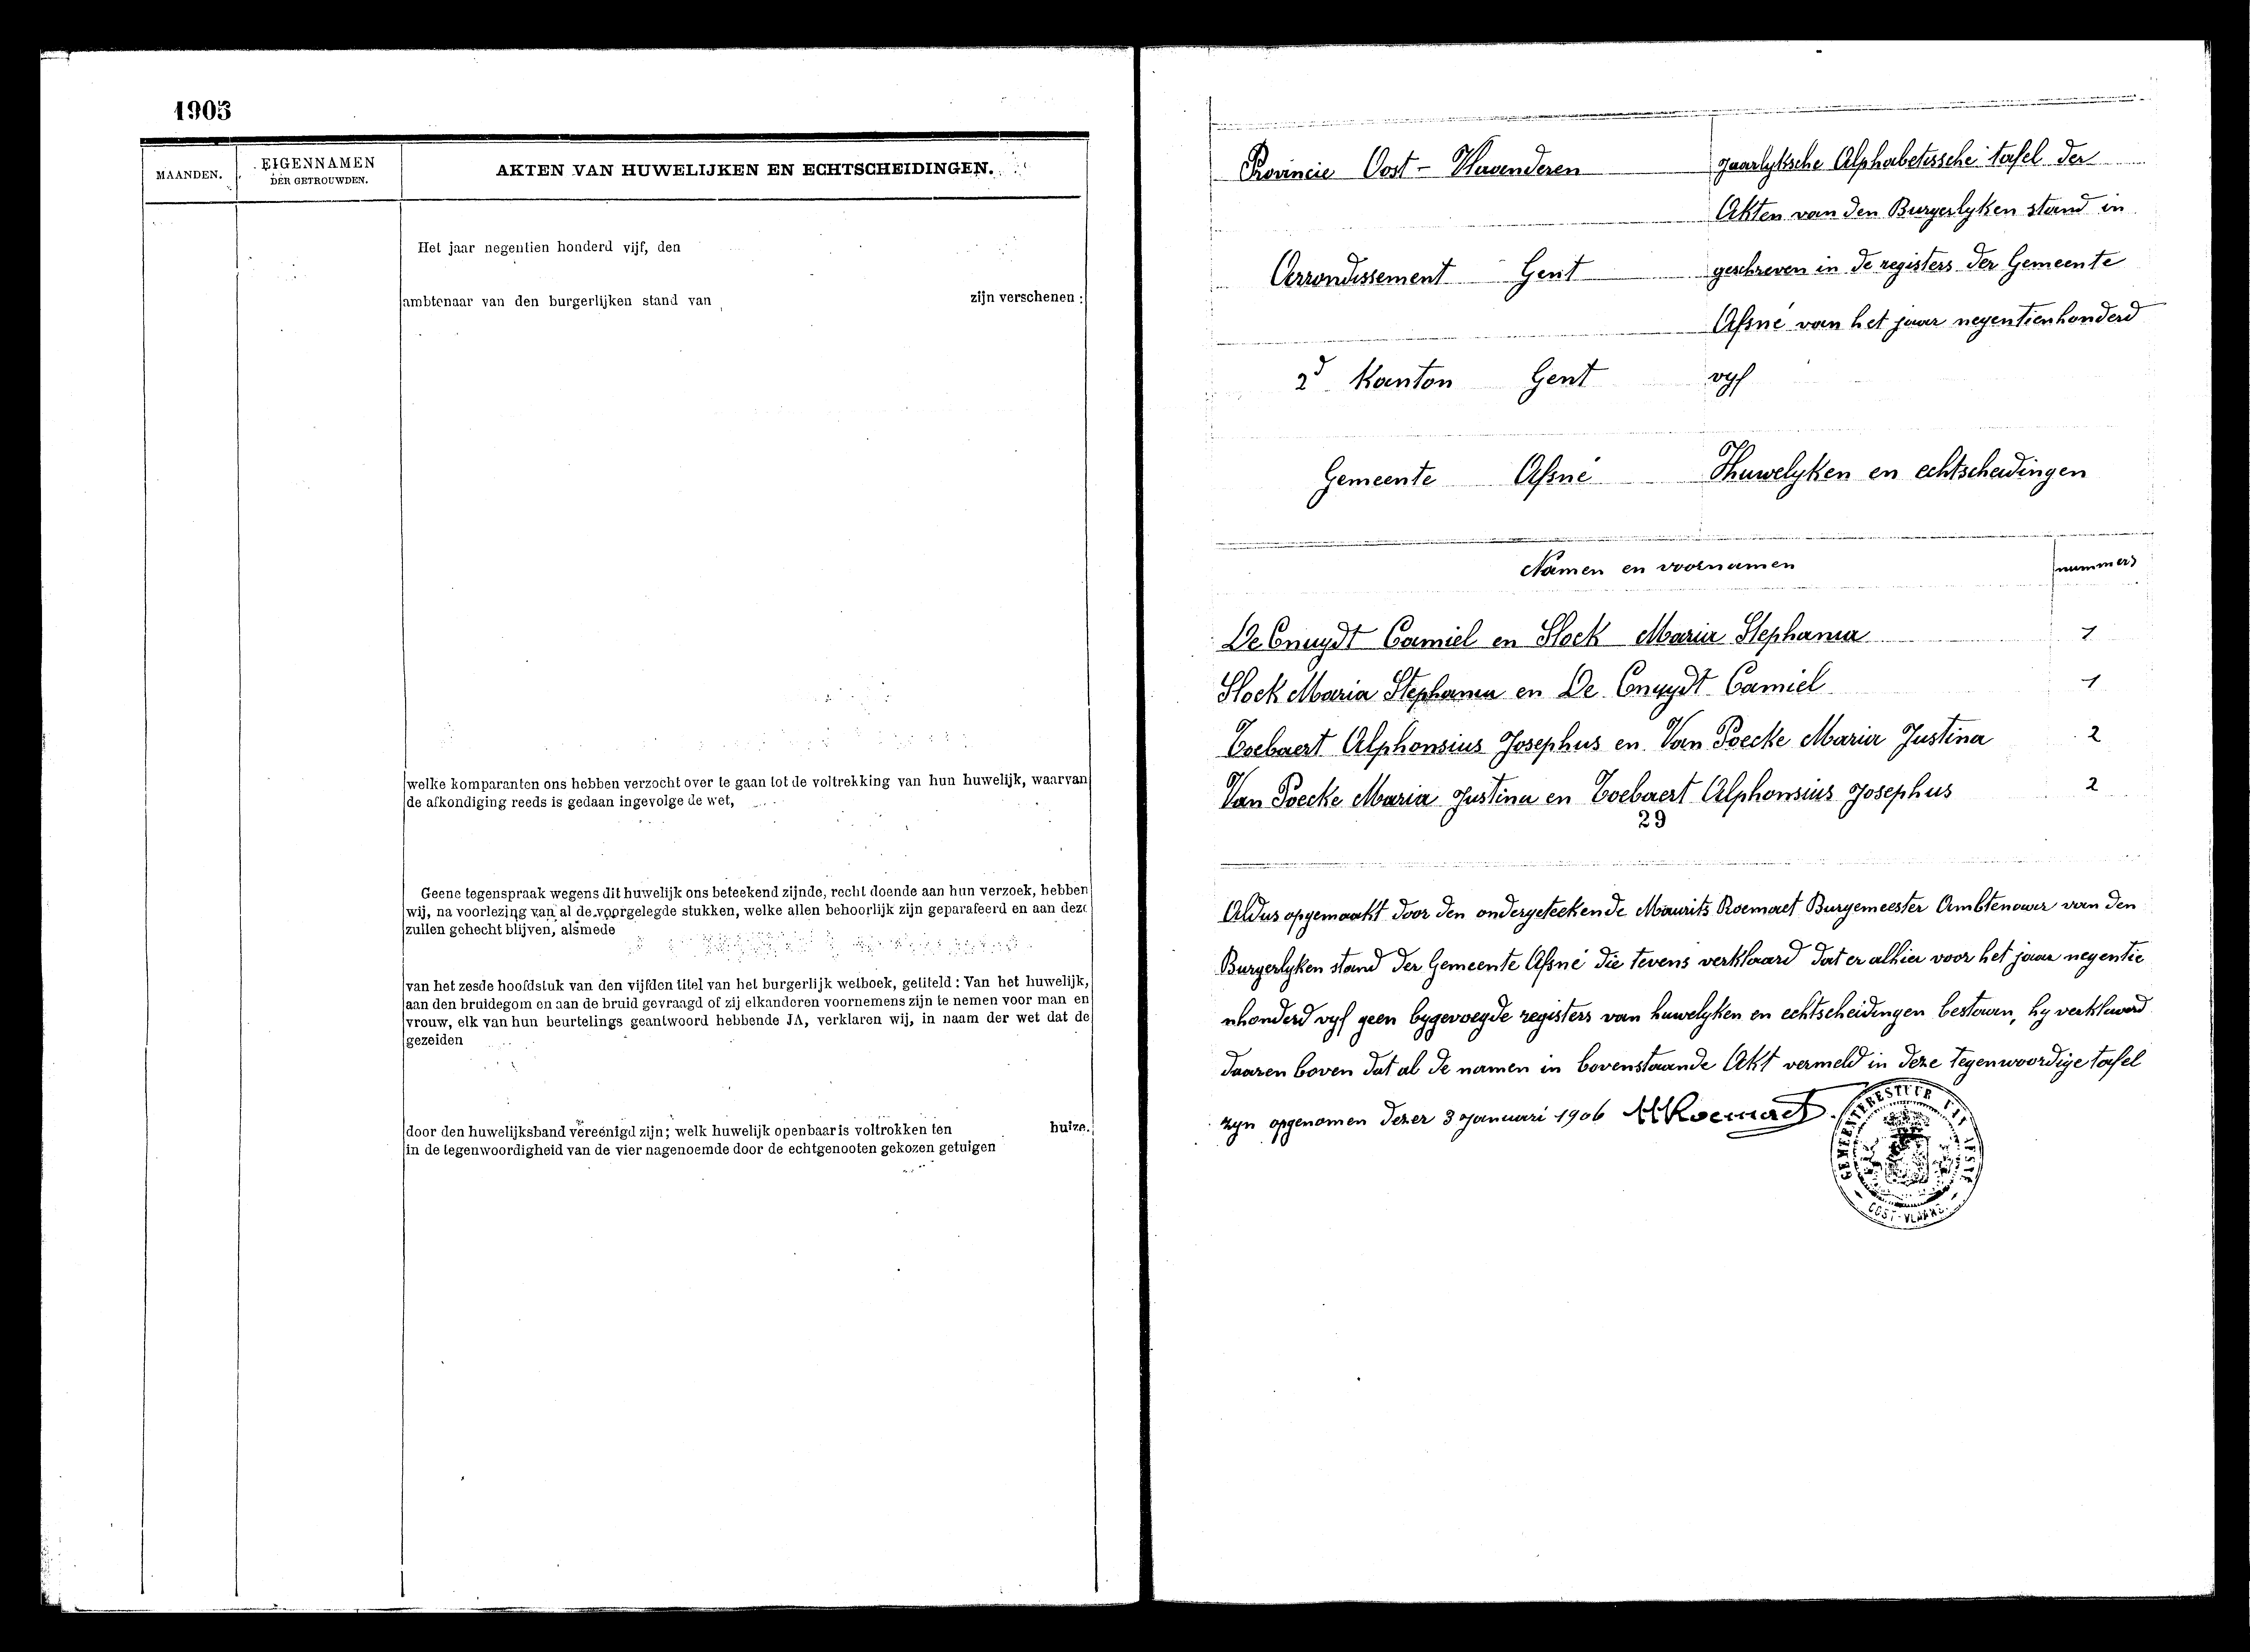 1905
MAANDEN.
EIGENNAMEN
DER GETROUWDEN.
AKTEN VAN HUWELIJKEN EN ECHTSCHEIDINGEN.
Het jaar negentien honderd vijf, den
ambtenaar van den burgerlijken stand van zijn verschenen :
welke komparanten ons hebben verzocht over te gaan tot de voltrekking van hun huwelijk, waarvan
de afkondiging reeds is gedaan ingevolge de wet,
Geene tegenspraak wegens dit huwelijk ons beteekend zijnde, recht doende aan hun verzoek, hebben
wij, na voorlezing van al de voorgelegde stukken, welke allen behoorlijk zijn geparafeerd en aan deze
zullen gehecht blijven, alsmede
van het zesde hoofdstuk van den vijfden titel van het burgerlijk wetboek, getiteld : Van het huwelijk,
aan den bruidegom en aan de bruid gevraagd of zij elkanderen voornemens zijn te nemen voor man en
vrouw, elk van hun beurtelings geantwoord hebbende JA, verklaren wij, in naam der wet dat de
gezeiden
door den huwelijksband vereenigd zijn; welk huwelijk openbaar is voltrokken ten huize.
in de tegenwoordigheid van de vier nagenoemde door de echtgenooten gekozen getuigen
Provincie Oost - Vlaenderen
Arrondissement Gent
2d Kanton Gent
Gemeente Afsné
jaarlyksche Alphabetissche tafel der
Akten van den Burgerlyken stand in
geschreven in de registers der Gemeente
Afsné van het jaar negentienhonderd
vyf
Huwelyken en echtscheidingen
Namen en voornamen nummers
De Cnuydt Camiel en Slock Maria Stephania 1
Slock Maria Stephania en De Cnuydt Camiel 1
Toebaert Alphonsius Josephus en Van Poecke Maria Justina 2
Van Poecke Maria Justina en Toebaert Alphonsius Josephus 2
29
Aldus opgemaakt door den ondergeteekende Maurits Roemaet Burgemeester Ambtenaar van den
Burgerlyken stand der Gemeente Afsné die tevens verklaard dat er alhier voor het jaar negentie
nhonderd vyf geen bygevoegde registers van huwelyken en echtscheidingen bestaan, hy verklaard
daaren boven dat al de namen in bovenstaande Akt vermeld in deze tegenwoordige tafel
zyn opgenomen dezer 3 januari 1906 MRoemaet
GEMEENTEBESTUUR VAN AFSNÉ
OOST-VLAAND.